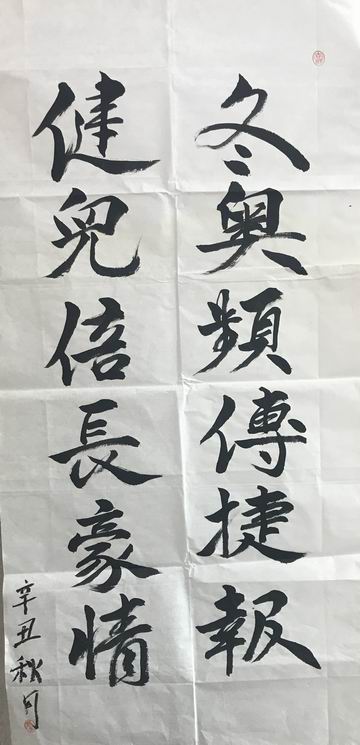 冬奧頻傳捷報
健兒倍長豪情
辛丑秋月